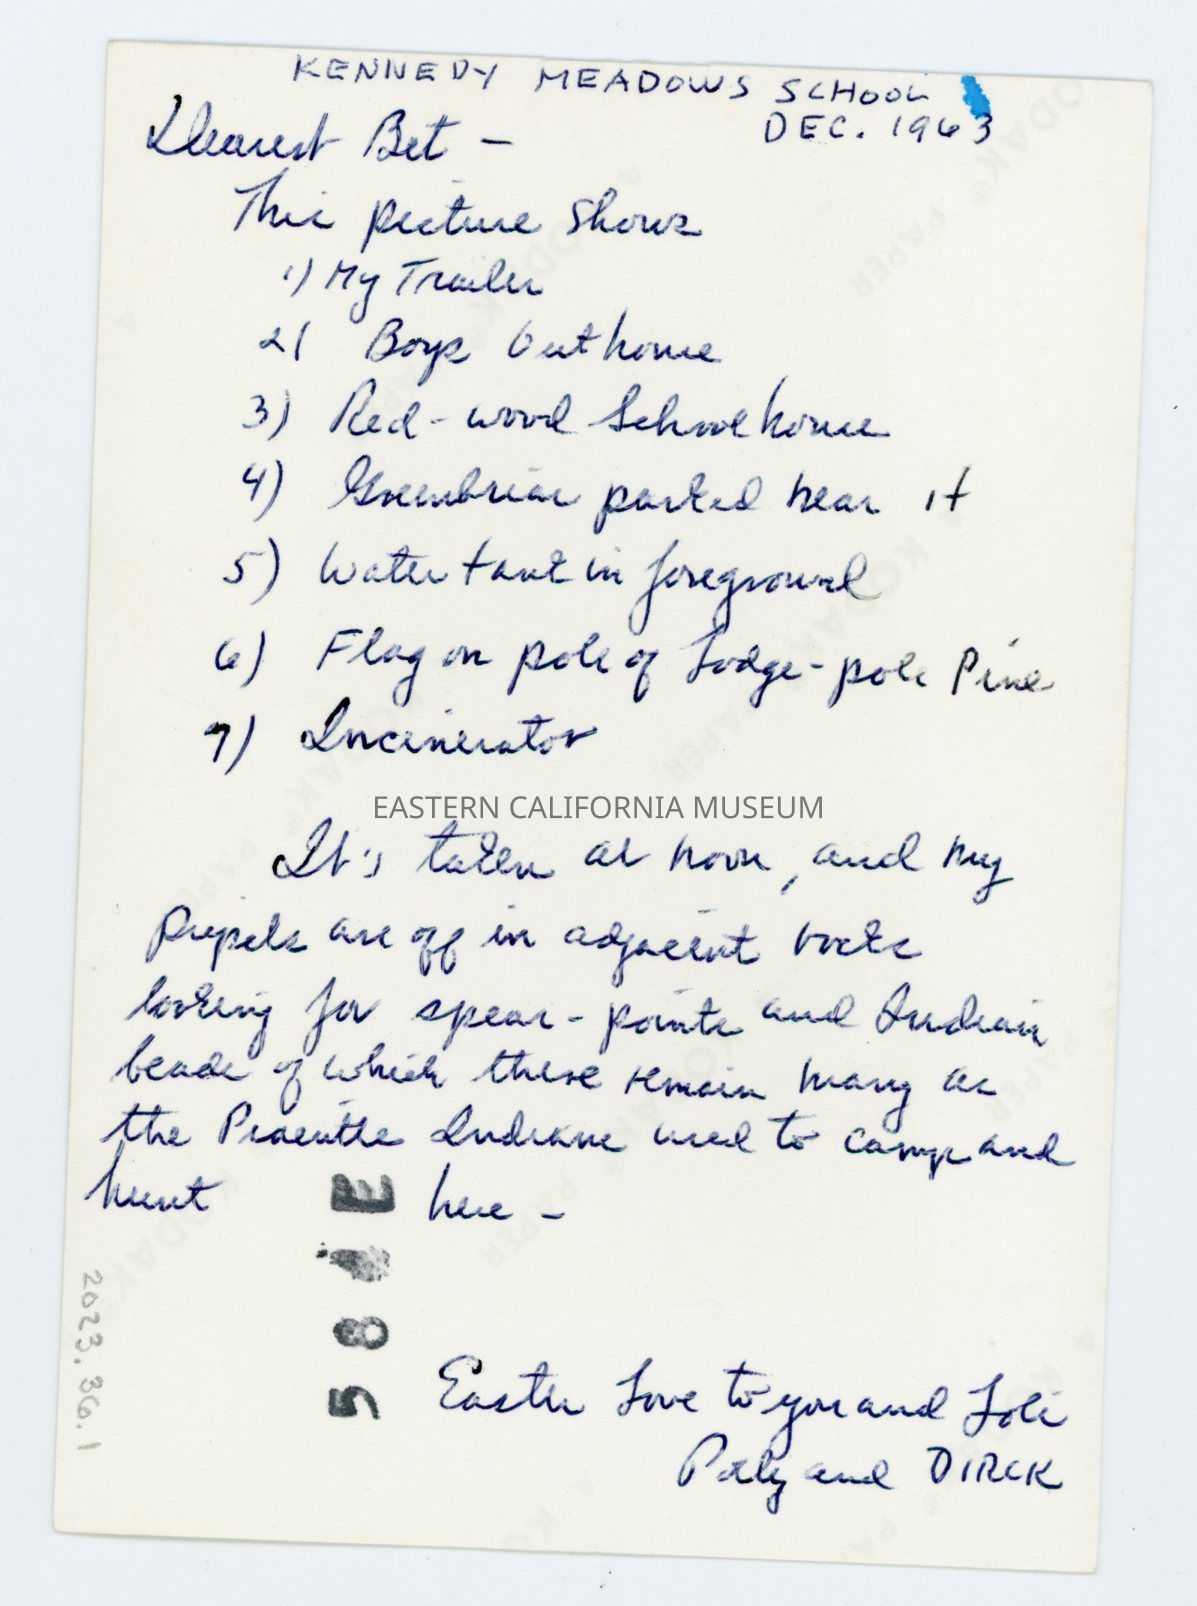 KENNEDY MEADOWS SCHOOL
DEC. 1963
Dearest Bet -
This picture shows
1) My Trailer
2) Boys Outhouse
3) Red-wood Schoolhouse
4) Greenbriar parked near it
5) Water tank in foreground
6) Flag on pole of Lodge-pole Pine
7) Incinerator
EASTERN CALIFORNIA MUSEUM
It's taken at noon, and my
pupils are off in adjacent rocks
looking for spear-points and Indian
beads of which there remain many as
the Piaeutte Indians used to camp and
hunt here -
E
8
5
2023.36.1
Easter Love to you and Loli
and DIRCK
KODAK PAPER